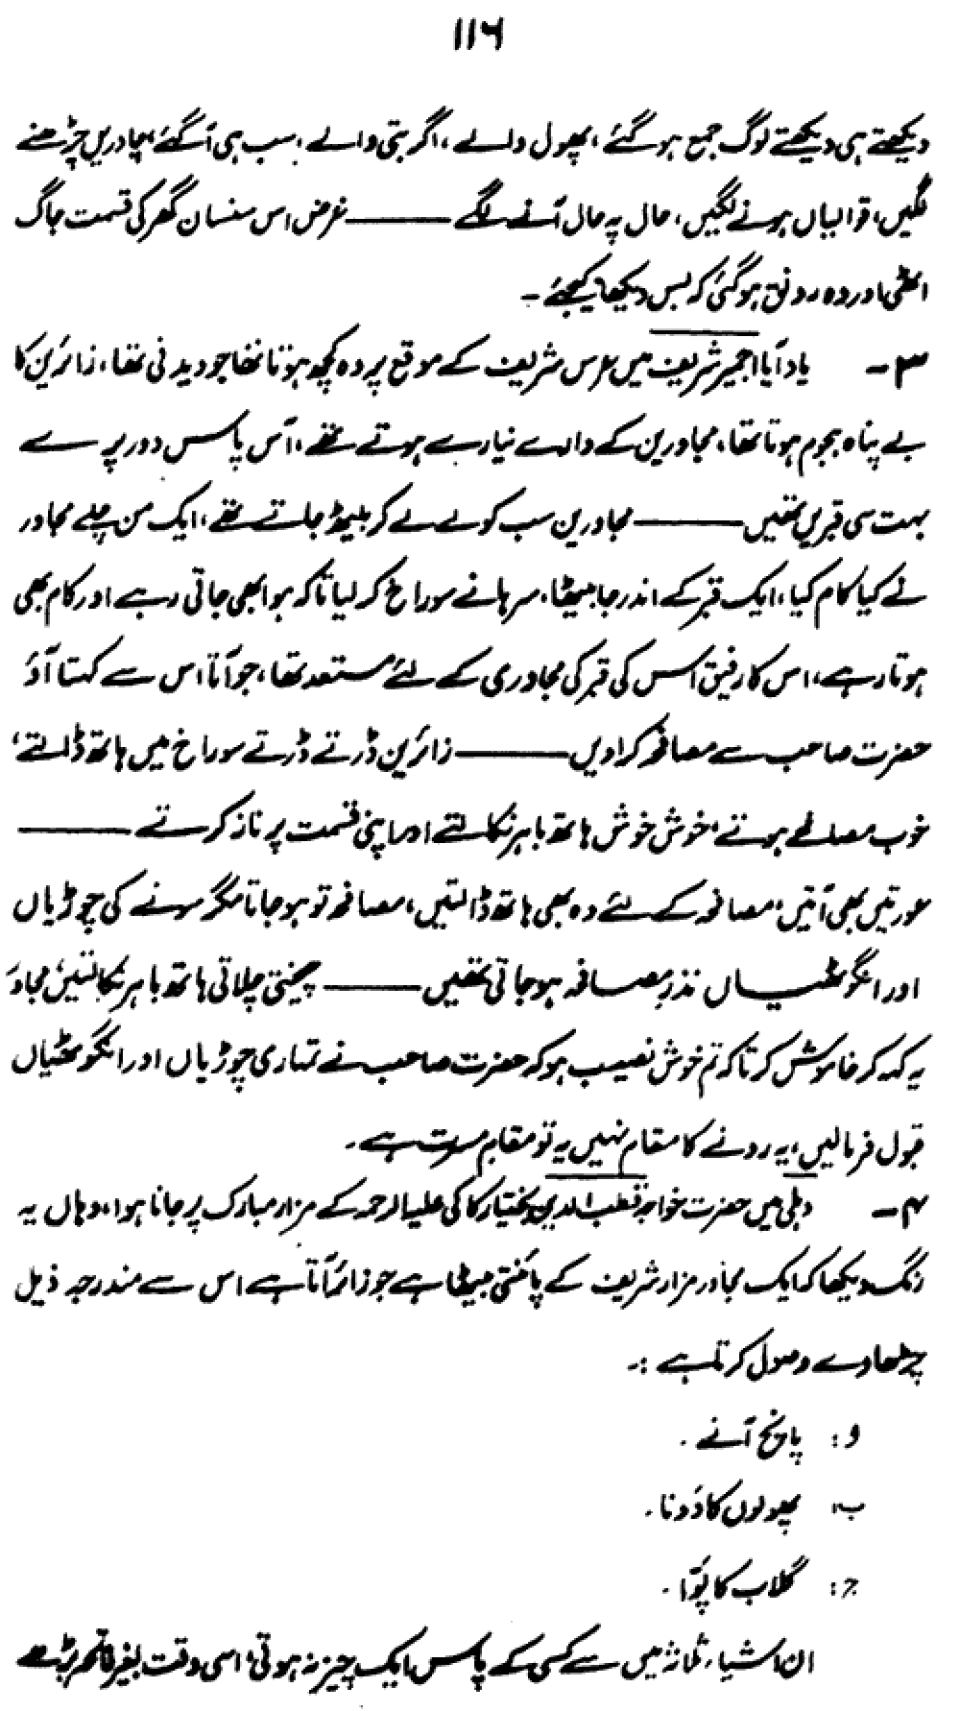 ۱۱۶
دیکھتے ہی دیکھتے لوگ جمع ہو گئے، پھول والے، اگر بتی والے، سب ہی آ گئے، چادریں چڑھنے
لگیں، قوالیاں ہونے لگیں، حال پہ حال آنے لگے ——— غرض اس سنسان گھر کی قسمت جاگ
اٹھی اور وہ رونق ہو گئی کہ بس دیکھا کیجئے ۔
۳ ۔ یاد آیا اجمیر شریف میں عرس شریف کے موقع پر وہ کچھ ہوتا تھا جو دیدنی تھا، زائرین کا
بے پناہ ہجوم ہوتا تھا، مجاورین کے وارے نیارے ہوتے تھے، آس پاس دور پرے
بہت سی قبریں تھیں ——— مجاورین سب کو لے لے کر بیٹھ جاتے تھے، ایک من چلے مجاور
نے کیا کام کیا، ایک قبر کے اندر جا بیٹھا، سرہانے سوراخ کر لیا تاکہ ہوا بھی جاتی رہے اور کام بھی
ہوتا رہے، اس کا رفیق اس کی قبر کی مجاوری کے لئے مستعد تھا، جو آتا اس سے کہتا آؤ
حضرت صاحب سے مصافحہ کرا دیں ——— زائرین ڈرتے ڈرتے سوراخ میں ہاتھ ڈالتے،
خوب مصافحے ہوتے، خوش خوش ہاتھ باہر نکالتے اور اپنی قسمت پر ناز کرتے ———
عورتیں بھی آتیں، مصافحہ کے لئے وہ بھی ہاتھ ڈالتیں، مصافحہ تو ہو جاتا مگر سونے کی چوڑیاں
اور انگوٹھیاں نذرِ مصافحہ ہو جاتی تھیں ——— چیختی چلاتی ہاتھ باہر نکالتیں، مجاور
یہ کہہ کر خاموش کرتا کہ تم خوش نصیب ہو کہ حضرت صاحب نے تمہاری چوڑیاں اور انگوٹھیاں
قبول فرمالیں، یہ رونے کا مقام نہیں یہ تو مقامِ مسرت ہے ۔
۴ ۔ دہلی میں حضرت خواجہ قطب الدین بختیار کاکی علیہ الرحمہ کے مزار مبارک پر جانا ہوا، وہاں یہ
رنگ دیکھا کہ ایک مجاور مزار شریف کے پائنتی بیٹھا ہے جو زائر آتا ہے اس سے مندرجہ ذیل
چڑھاوے وصول کرتا ہے :۔
و : پانچ آنے ۔
ب : پھولوں کا دَونا ۔
ج : گلاب کا پَوّا ۔
ان اشیاء ثلاثہ میں سے کسی کے پاس ایک چیز نہ ہوتی، اسی وقت بغیر فاتحہ پڑھے